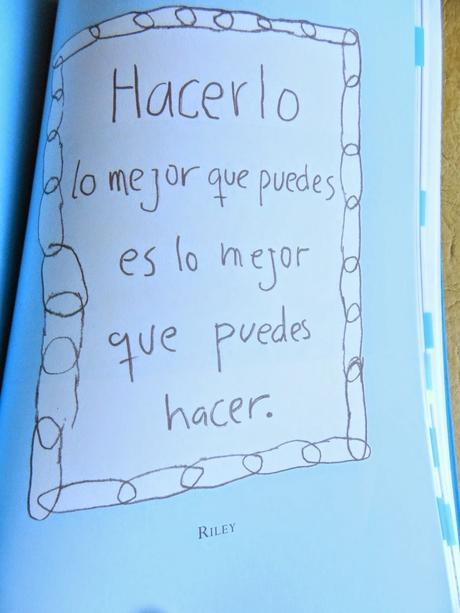 Hacerlo
lo mejor que puedes
es lo mejor
que puedes
hacer.
RILEY